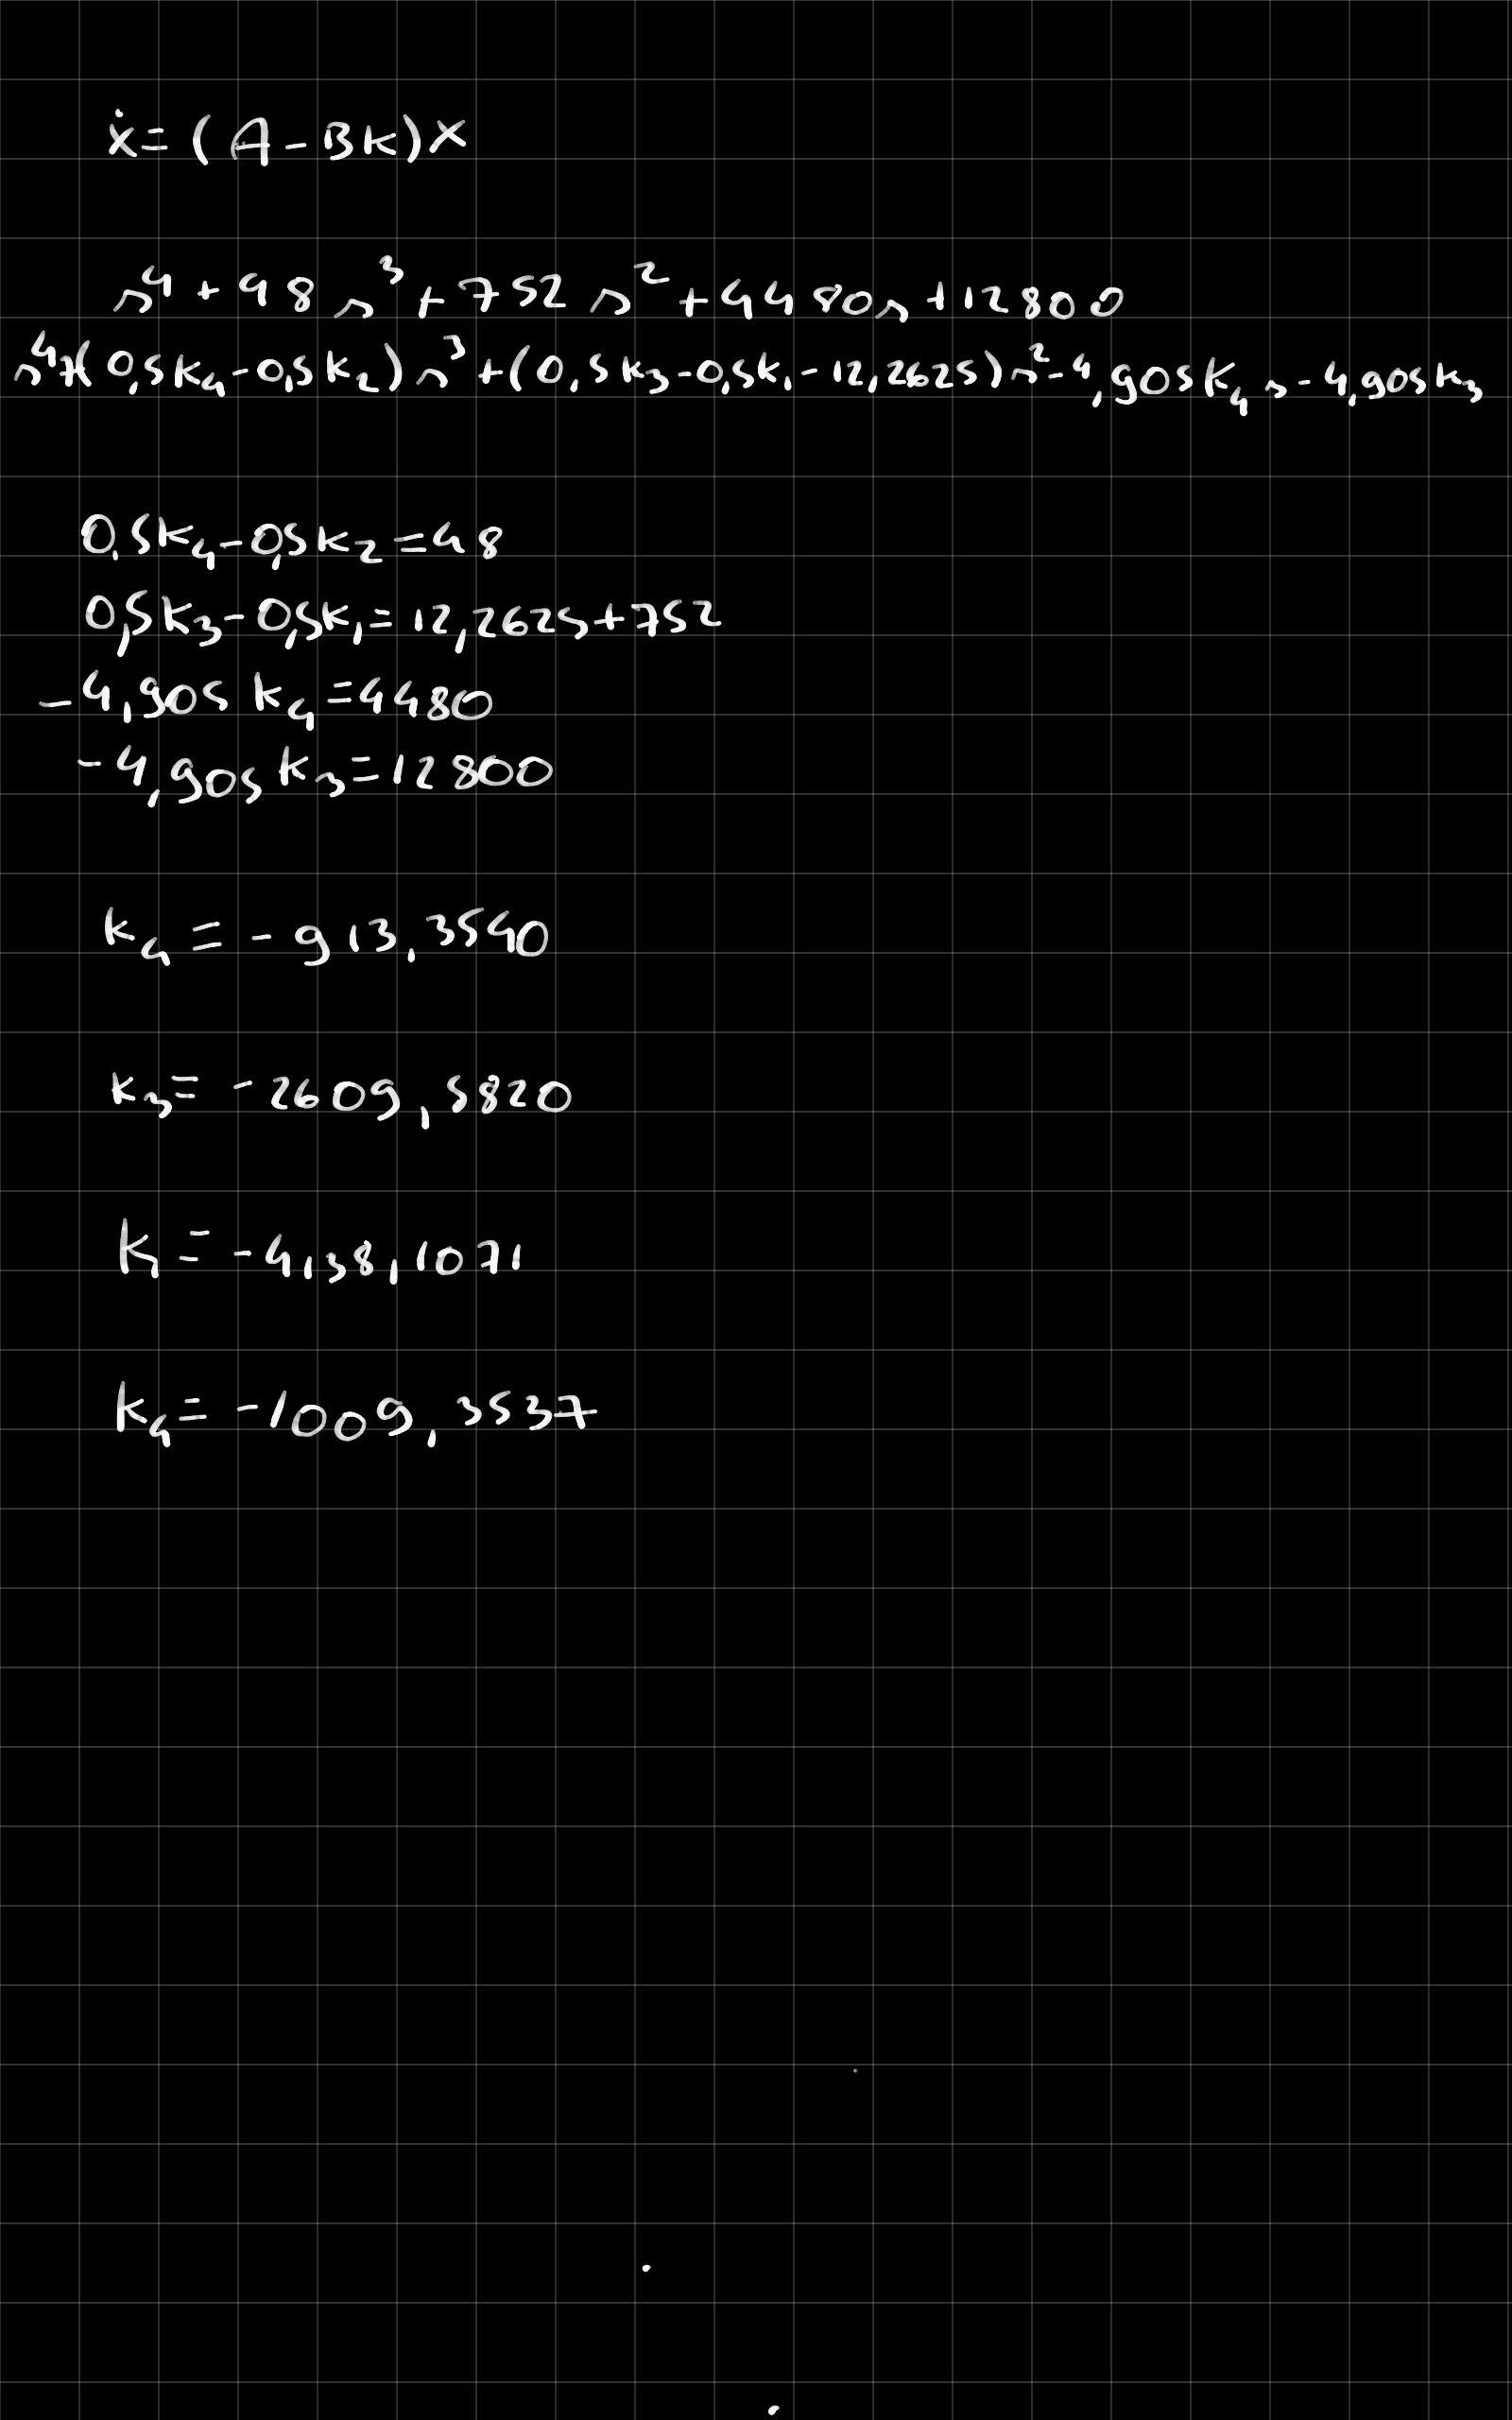 ẋ=(A-BK)x
s⁴+48s³+752s²+4480s+12800
s⁴+(0,5k₄-0,5k₂)s³+(0,5k₃-0,5k₁-12,2625)s²-4,905k₄s-4,905k₃
0,5k₄-0,5k₂=48
0,5k₃-0,5k₁=12,2625+752
-4,905k₄=4480
-4,905k₃=12800
k₄=-913,3540
k₃=-2609,5820
k₁=-4138,1071
k₄=-1009,3537